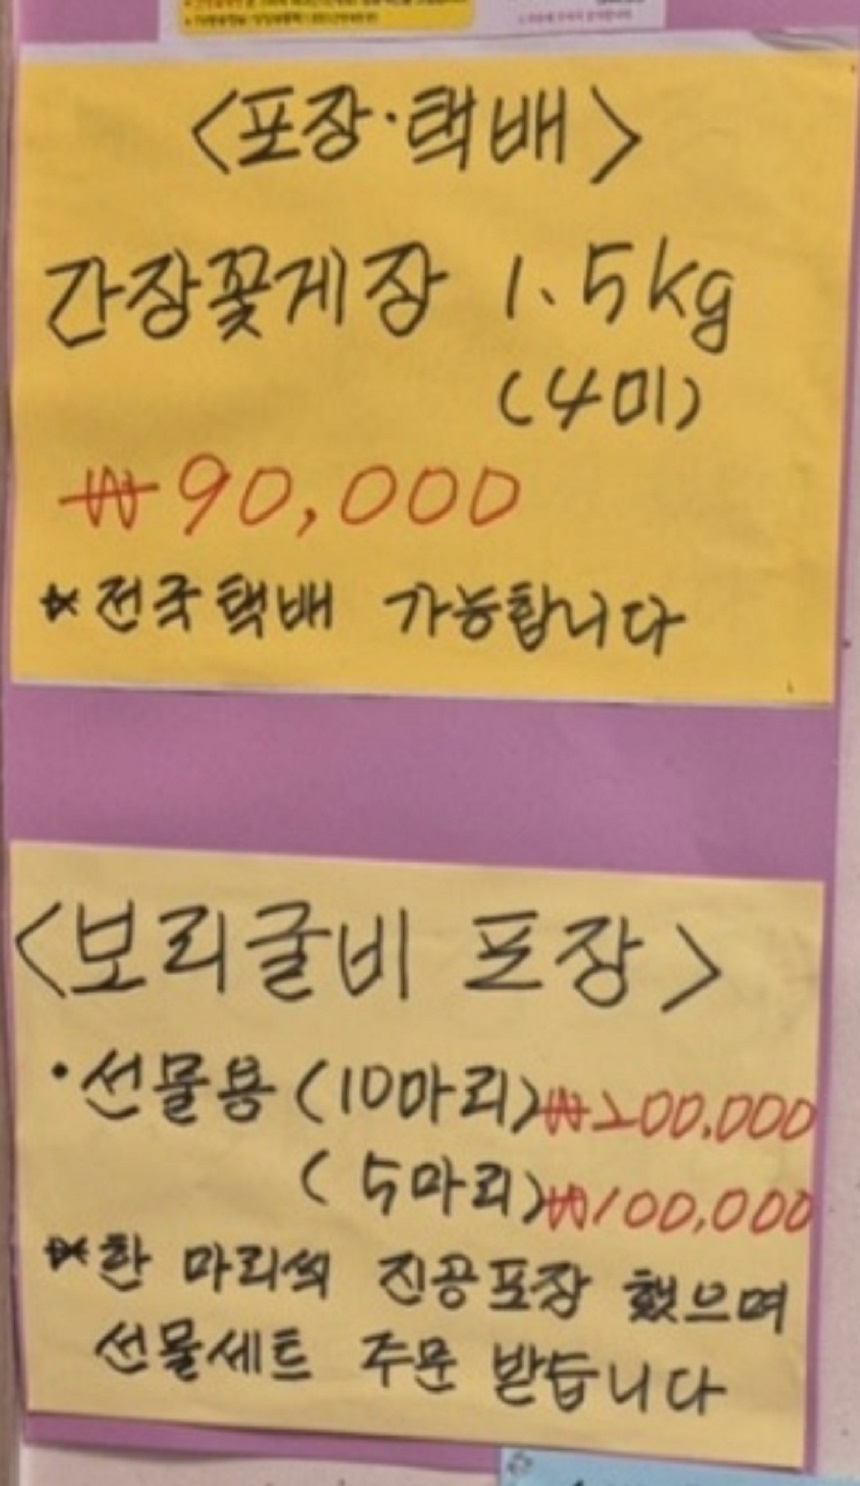 <포장·택배>
간장꽃게장 1.5kg
(4미)
₩90,000
* 전국택배 가능합니다
<보리굴비 포장>
· 선물용 (10마리) ₩200,000
(5마리) ₩100,000
* 한 마리씩 진공포장 했으며
선물세트 주문 받습니다